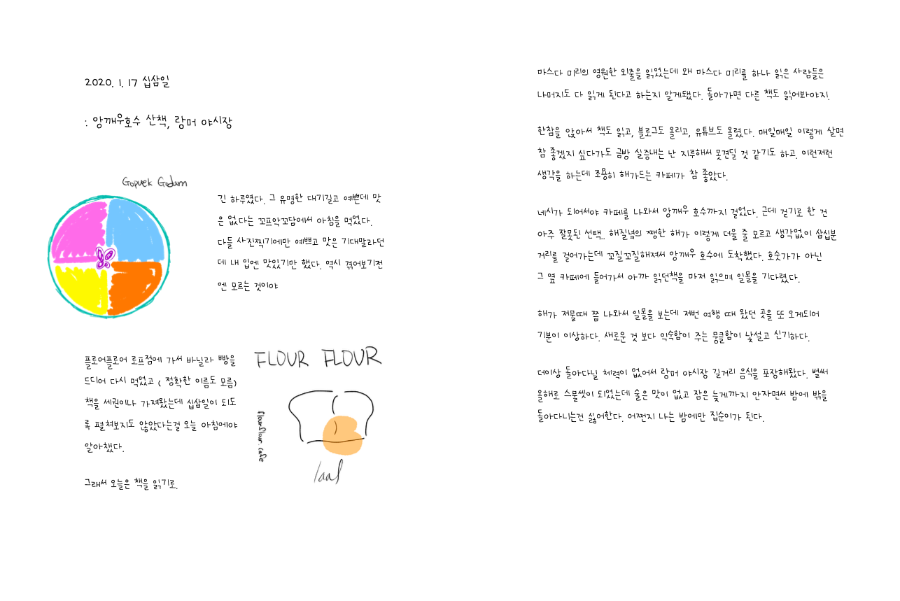 2020. 1. 17 십삼일
: 앙깨우호수 산책, 랑머 야시장
긴 하루였다. 그 유명한 대기길고 예쁜데 맛
은 없다는 꼬프악꼬담에서 아침을 먹었다.
다들 사진찍기에만 예쁘고 맛은 기대말라던
데 내 입엔 맛있기만 했다. 역시 겪어보기전
엔 모르는 것이야
플로어플로어 로프점에 가서 바닐라 빵을
드디어 다시 먹었고 ( 정확한 이름도 모름)
책을 세권이나 가져왔는데 십삼일이 되도
록 펼쳐보지도 않았다는걸 오늘 아침에야
알아챘다.
그래서 오늘은 책을 읽기로.
FLOUR FLOUR
flourflour.cafe
loaf
마스다 미리의 영원한 외출을 읽었는데 왜 마스다 미리를 하나 읽은 사람들은
나머지도 다 읽게 된다고 하는지 알게됐다. 돌아가면 다른 책도 읽어봐야지.
한참을 앉아서 책도 읽고, 블로그도 올리고, 유튜브도 올렸다. 매일매일 이렇게 살면
참 좋겠지 싶다가도 금방 싫증내는 난 지루해서 못견딜 것 같기도 하고. 이런저런
생각을 하는데 조용히 해가드는 카페가 참 좋았다.
네시가 되어서야 카페를 나와서 앙깨우 호수까지 걸었다. 근데 걷기로 한 건
아주 잘못된 선택.. 해질녘의 쨍한 해가 이렇게 더울 줄 모르고 생각없이 삼십분
거리를 걸어가는데 꼬질꼬질해져서 앙깨우 호수에 도착했다. 호숫가가 아닌
그 옆 카페에 들어가서 아까 읽던책을 마저 읽으며 일몰을 기다렸다.
해가 저물때 쯤 나와서 일몰을 보는데 저번 여행 때 왔던 곳을 또 오게되어
기분이 이상하다. 새로운 것 보다 익숙함이 주는 뭉클함이 낯설고 신기하다.
더이상 돌아다닐 체력이 없어서 랑머 야시장 길거리 음식을 포장해왔다. 벌써
올해로 스물셋이 되었는데 술은 맛이 없고 잠은 늦게까지 안자면서 밤에 밖을
돌아다니는건 싫어한다. 어쩐지 나는 밤에만 집순이가 된다.